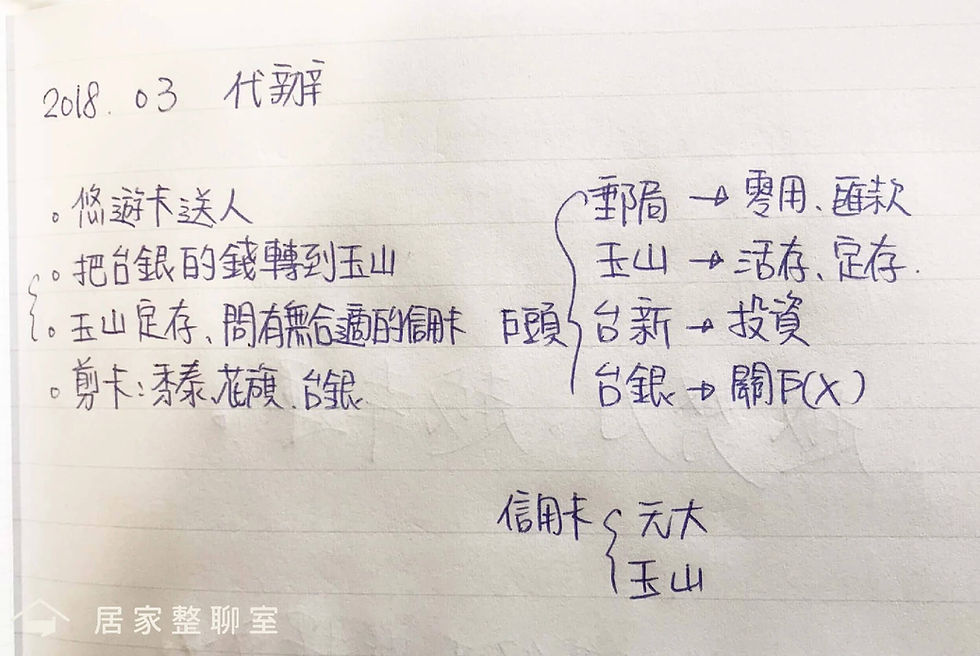 2018.03 代辦
。悠遊卡送人
。把台銀的錢轉到玉山
。玉山定存、問有無合適的信用卡
。剪卡:乑泰、花旗、台銀
戶頭
郵局→零用、匯款
玉山→活存、定存.
台新→投資
台銀→關戶(X)
信用卡
元大
玉山
居家整聊室